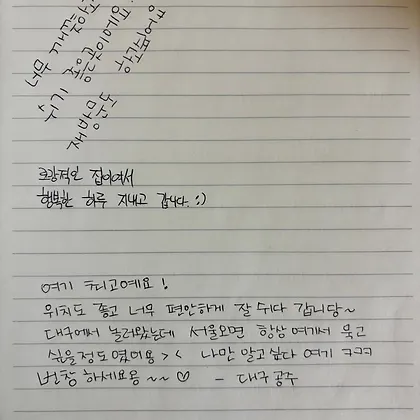 너무 깨끗하고
쉬기 좋은곳이에요
재방문도 하고싶어요
감각적인 집이여서
행복한 하루 지내고 갑니다. :)
여기 최고예요!
위치도 좋고 너무 편안하게 잘 쉬다 갑니당~
대구에서 놀러왔는데 서울오면 항상 여기서 묵고
싶을정도였어용 > < 나만 알고싶다 여기 ㅋㅋㅋ
번창 하세요용 ~~ ♡ - 대구공주